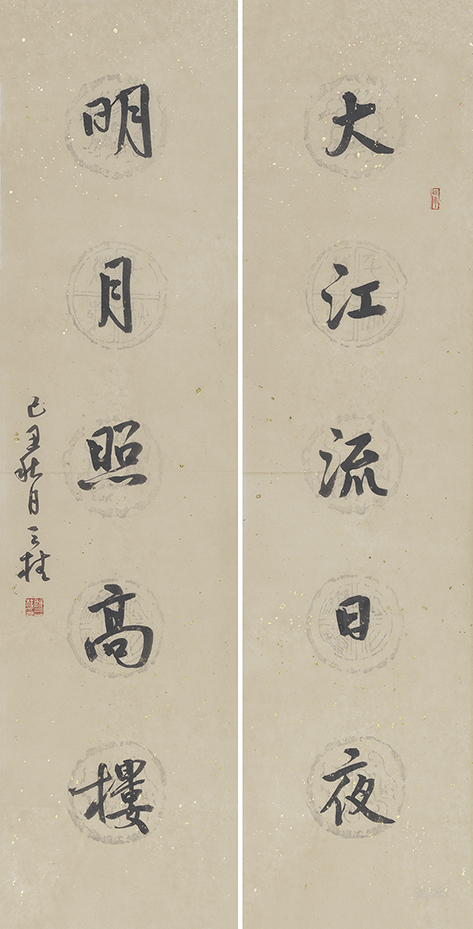 大江流日夜
明月照高樓
己丑秋月